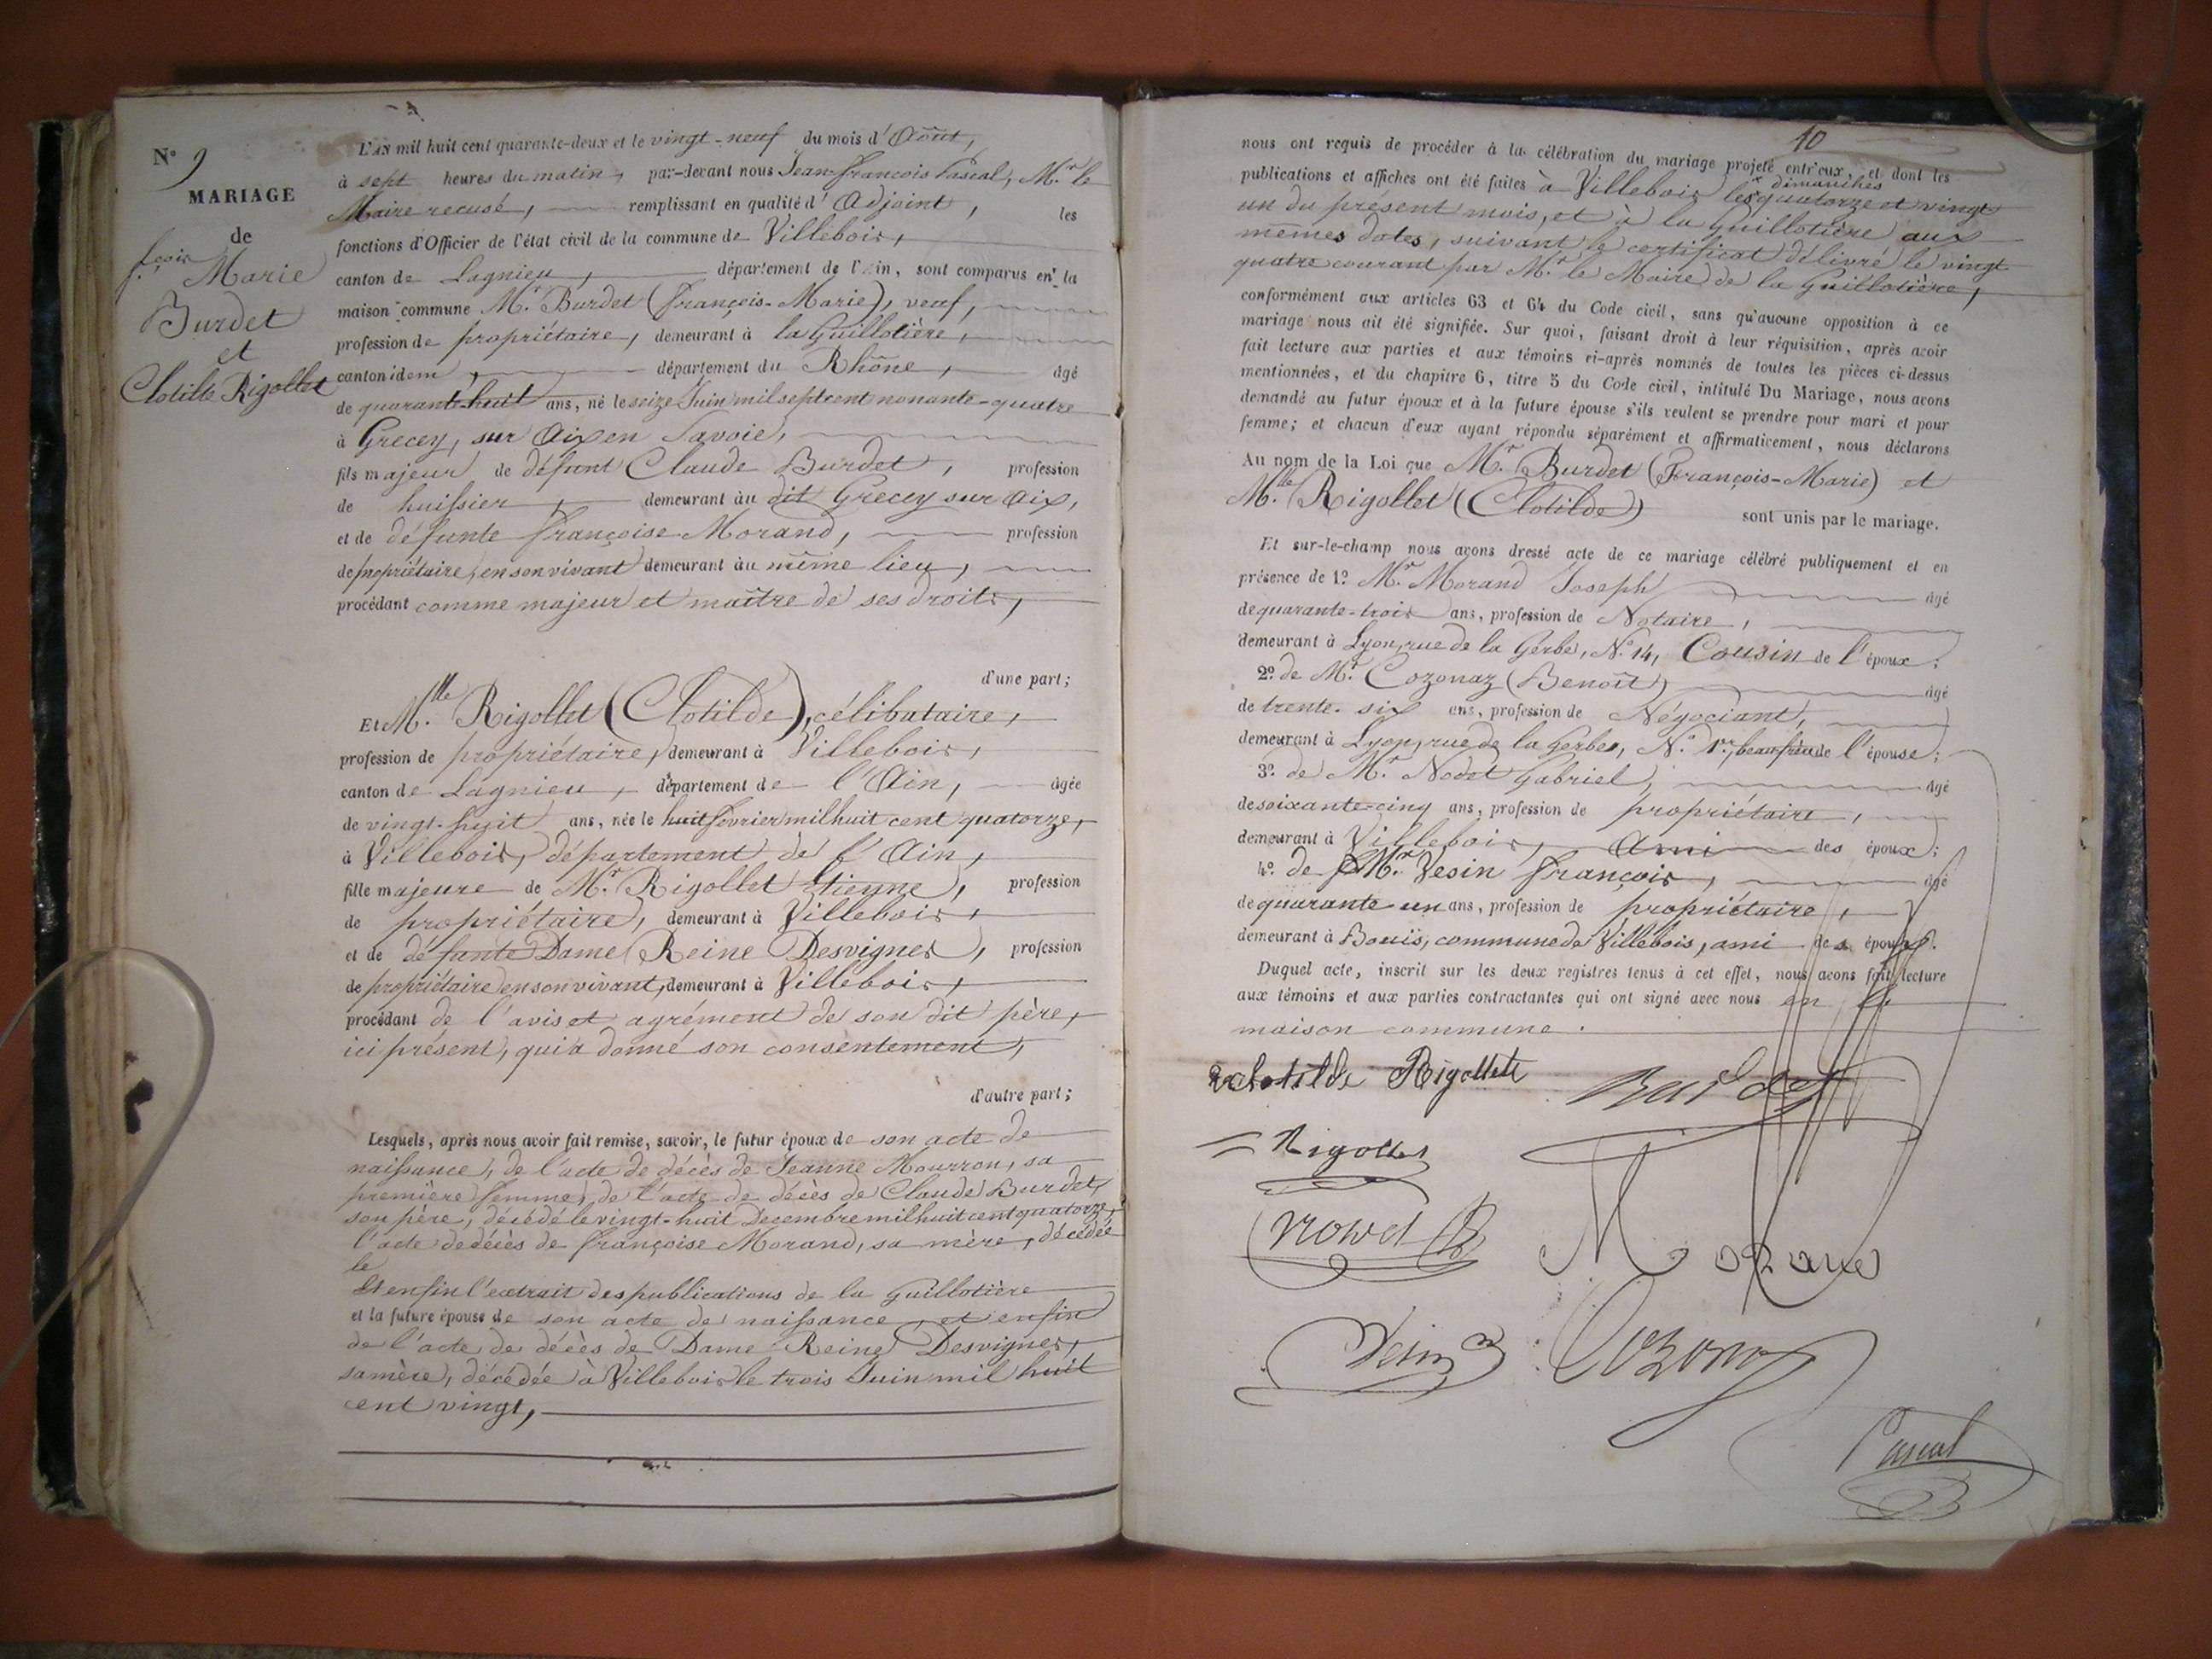 N° 9
MARIAGE
de
fçois Marie
Burdet
et
Clotilde Rigollet
L'AN mil huit cent quarante-deux et le vingt-neuf du mois d'Août,
à sept heures du matin, par-devant nous Jean-françois Pascal, M.r le
Maire recusé, remplissant en qualité d'Adjoint, les
fonctions d'Officier de l'état civil de la commune de Villebois,
canton de Lagnieu, département de l'Ain, sont comparus en la
maison commune M.r Burdet (françois-Marie), veuf,
profession de propriétaire, demeurant à la Guillotière,
canton idem, département du Rhône, âgé
de quarante-huit ans, né le seize Juin mil sept cent nonante-quatre
à Grecey, sur Aix en Savoie,
fils majeur de défunt Claude Burdet, profession
de huissier, demeurant au dit Grecey sur Aix,
et de défunte françoise Morand, profession
de propriétaire, en son vivant demeurant au même lieu,
procédant comme majeur et maître de ses droits,
d'une part;
Et M.lle Rigollet (Clotilde), célibataire,
profession de propriétaire, demeurant à Villebois,
canton de Lagnieu, département de l'Ain, âgée
de vingt-huit ans, née le huit février mil huit cent quatorze,
à Villebois, département de l'Ain,
fille majeure de M.r Rigollet Etienne, profession
de propriétaire, demeurant à Villebois,
et de défunte Dame Reine Desvignes, profession
de propriétaire en son vivant, demeurant à Villebois,
procédant de l'avis et agrément de son dit père,
ici présent, qui a donné son consentement,
d'autre part;
Lesquels, après nous avoir fait remise, savoir, le futur époux de son acte de
naissance, de l'acte de décès de Jeanne Mourron, sa
première femme, de l'acte de décès de Claude Burdet,
son père, décédé le vingt-huit Decembre mil huit cent quatorze,
l'acte de décès de françoise Morand, sa mère, décédée
le
Et enfin l'extrait des publications de la Guillotière
et la future épouse de son acte de naissance, et enfin
de l'acte de décès de Dame Reine Desvignes,
sa mère, décédée à Villebois le trois Juin mil huit
cent vingt,
10
nous ont requis de procéder à la célébration du mariage projeté entr'eux, et dont les
publications et affiches ont été faites à Villebois les dimanches quatorze et vingt
un du présent mois, et à la Guillotière aux
mêmes dates, suivant le certificat délivré le vingt
quatre courant par M.r le Maire de la Guillotière,
conformément aux articles 63 et 64 du Code civil, sans qu'aucune opposition à ce
mariage nous ait été signifiée. Sur quoi, faisant droit à leur réquisition, après avoir
fait lecture aux parties et aux témoins ci-après nommés de toutes les pièces ci-dessus
mentionnées, et du chapitre 6, titre 5 du Code civil, intitulé Du Mariage, nous avons
demandé au futur époux et à la future épouse s'ils veulent se prendre pour mari et pour
femme; et chacun d'eux ayant répondu séparément et affirmativement, nous déclarons
Au nom de la Loi que M.r Burdet (François-Marie) et
M.lle Rigollet (Clotilde) sont unis par le mariage.
Et sur-le-champ nous avons dressé acte de ce mariage célébré publiquement et en
présence de 1° M.r Morand Joseph âgé
de quarante-trois ans, profession de Notaire,
demeurant à Lyon, rue de la Gerbe, N.° 14, Cousin de l'époux;
2° de M.r Cozonaz (Benoît) âgé
de trente-six ans, profession de Négociant,
demeurant à Lyon, rue de la Gerbes, N.° 1er, beau-frère de l'épouse;
3° de M.r Nodet Gabriel, âgé
de soixante-cinq ans, profession de propriétaire,
demeurant à Villebois, Ami des époux;
4° de M.r Vesin françois, âgé
de quarante un ans, profession de propriétaire,
demeurant à Bouis, commune de Villebois, ami des époux.
Duquel acte, inscrit sur les deux registres tenus à cet effet, nous avons fait lecture
aux témoins et aux parties contractantes qui ont signé avec nous en la
maison commune.
Clotilde Rigollet Burdet
Rigollet
Morand
Vesin Cozonaz
Pascal